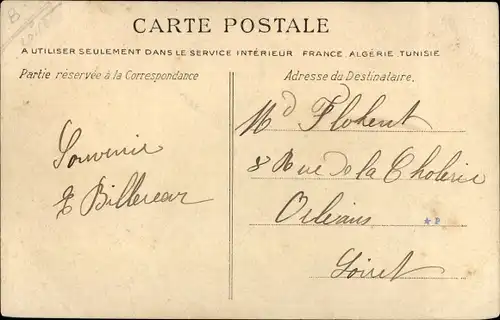 CARTE POSTALE
A UTILISER SEULEMENT DANS LE SERVICE INTÉRIEUR FRANCE, ALGÉRIE, TUNISIE
Partie réservée à la Correspondance
Adresse du Destinataire.
Souvenir
Md Flohent
8 Rue de la Cholerie
Orléans
Loiret